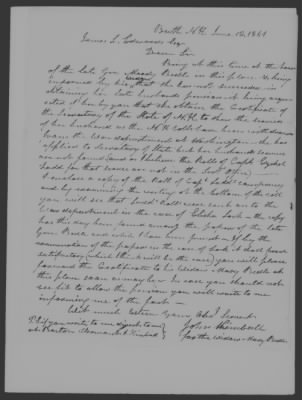 Bath NH. June 18, 1841
James L. Edwards Esqr
Dear Sir
Being at this time at the house
of the late Gen Moody Bedel in this place & being
informed by his widow that she has not succeeded in
obtaining her late husbands pension it being requ-
ested of her by you that she obtain the Certificate of
the Secretary of the State of NH. to show the service
of her husband as the NH rolls have been withdrawn
from the War department at Washington. She has
applied to Secretary of State but her husbands name
are not found
Ladd for that
I enclose a copy of the Roll of Capt Ladds company
and by examining the writing at the bottom of the roll
you will see that Ladds Roll were sent on to the
War department in the case of the copy
has this day been found among the papers of the late
Gen Bedel and which I am present if by the
examination of the papers in the case of it shall prove
satisfactory (which I think will be the case) you will please
forward the Certificate to her Widow Mary Bedel at
this place soon as may be. In case you should not
see fit to allow the pension you will write to me
informing me of the fact —
With much esteem Your Obt Servt
John Kimball
for the widow Mary Bedel
P.S. if you write to me direct to me
at Barton Vermont J Kimball